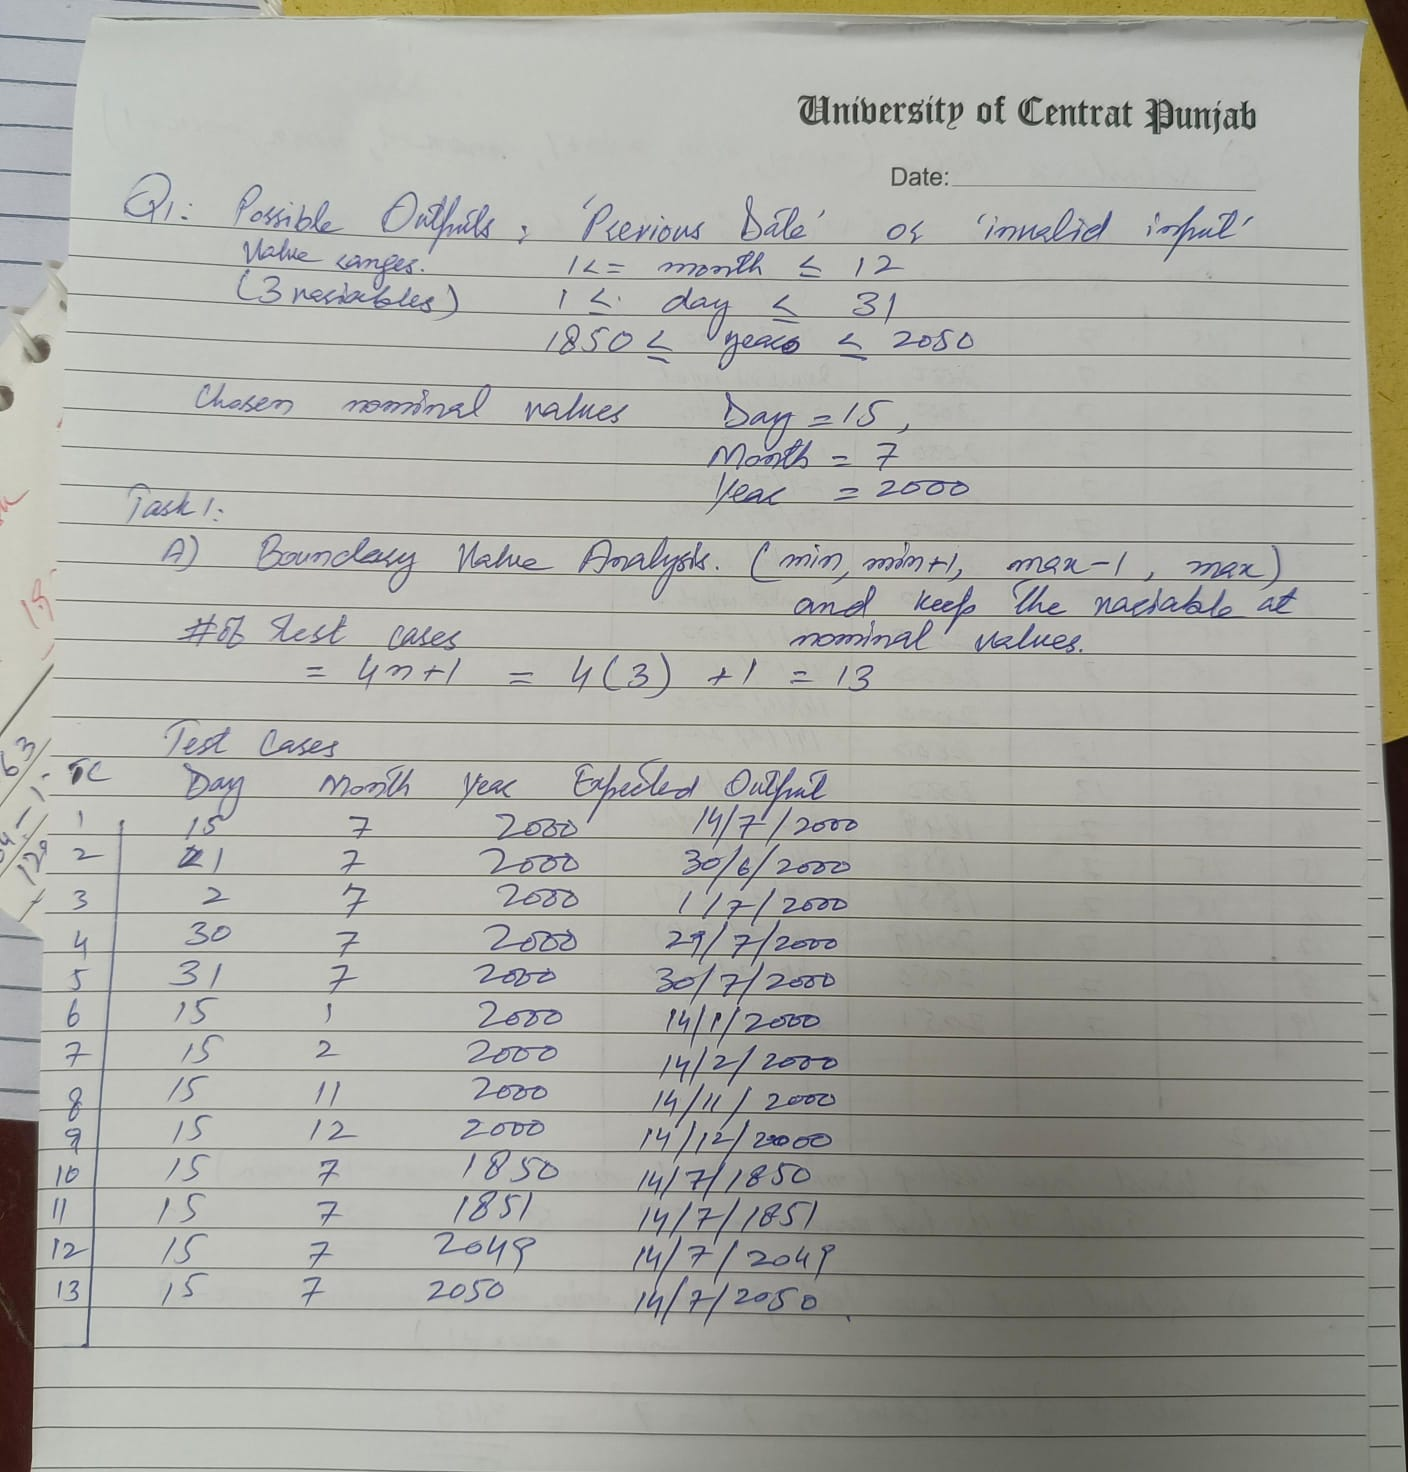 University of Centrat Punjab
Date:
Q1: Possible Outputs; 'Previous Date' or 'invalid input'
Value ranges. 1 <= month ≤ 12
(3 variables) 1 ≤ day ≤ 31
1850 ≤ year ≤ 2050
Chosen nominal values Day = 15,
Month = 7
Year = 2000
Task 1:
A) Boundary Value Analysis. (min, min+1, max-1, max)
and keep the variable at
# of test cases nominal values.
= 4n+1 = 4(3) +1 = 13
Test Cases
TC Day Month Year Expected Output
1 15 7 2000 14/7/2000
2 1 7 2000 30/6/2000
3 2 7 2000 1/7/2000
4 30 7 2000 29/7/2000
5 31 7 2000 30/7/2000
6 15 1 2000 14/1/2000
7 15 2 2000 14/2/2000
8 15 11 2000 14/11/2000
9 15 12 2000 14/12/2000
10 15 7 1850 14/7/1850
11 15 7 1851 14/7/1851
12 15 7 2049 14/7/2049
13 15 7 2050 14/7/2050.
63